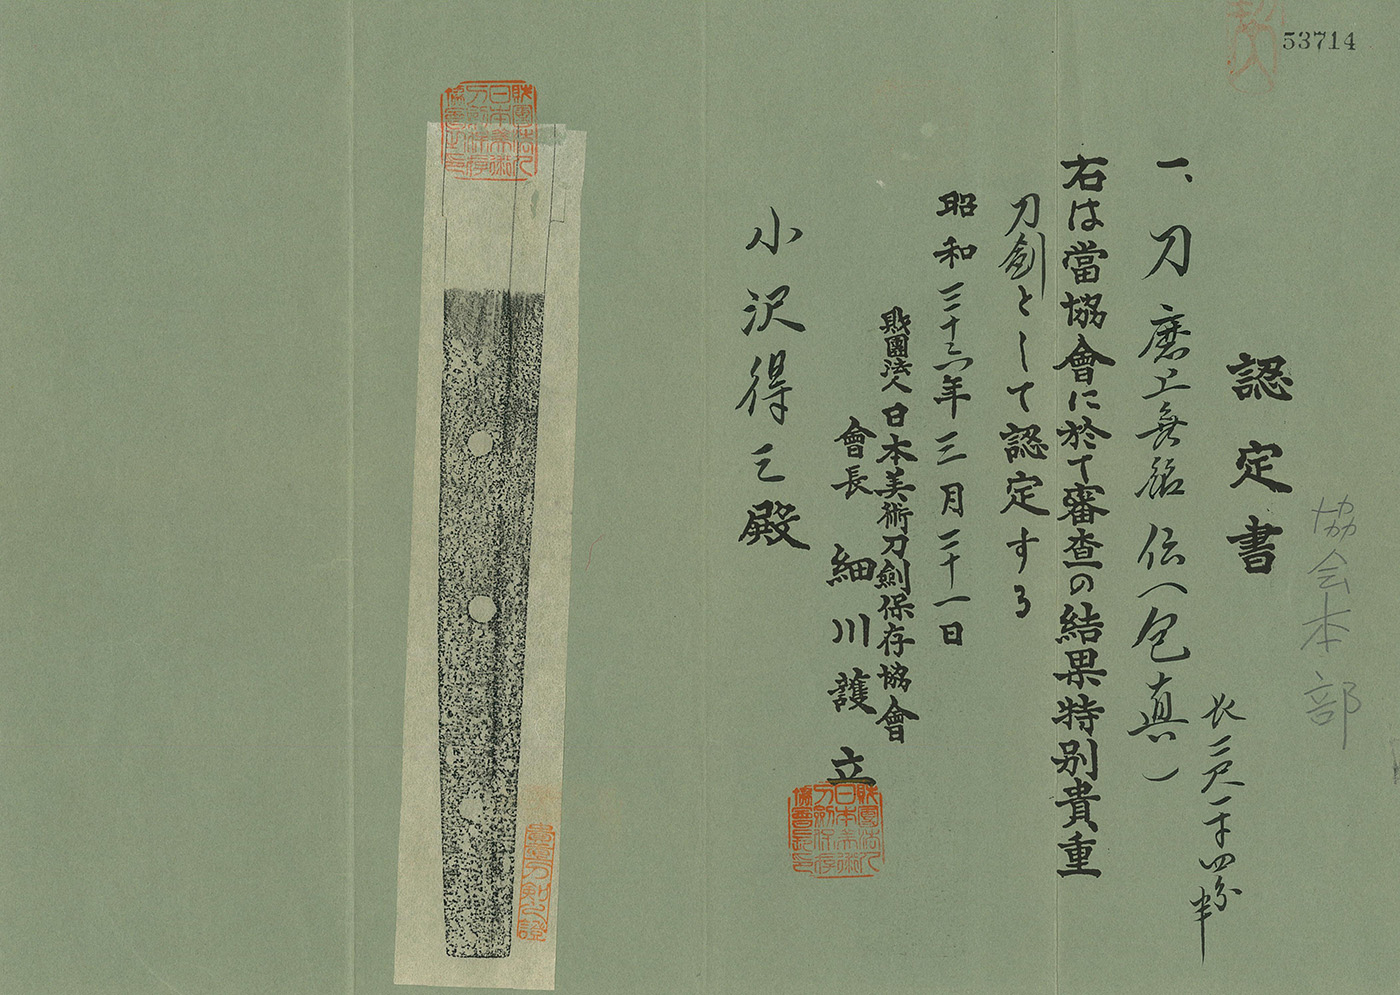 53714
協会本部
認定書
一、刀 磨上無銘 伝へ包真一
長二尺一寸四分半
右は當協會に於て審査の結果特別貴重
刀劍として認定する
昭和三十六年三月二十一日
財團法人日本美術刀劍保存協會
會長 細川護立
小沢得三殿
財團法人日本美術刀劍保存協會長印
財團法人日本美術刀劍保存協會長印
貴重刀劍之證